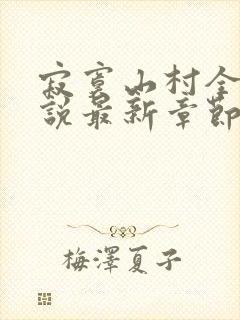 寂寞山村全
說最新章節
梅澤夏子